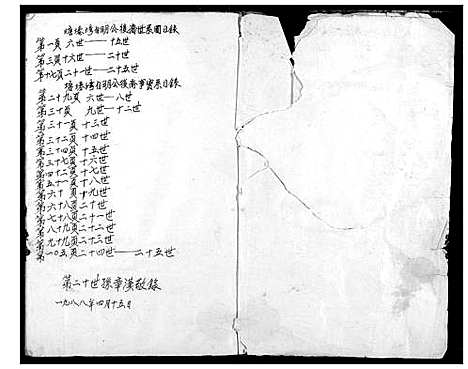 塘公後裔世系圖目錄
第一頁 六世——十五世
第三頁 十六世——二十世
第十七頁 二十一世——二十五世
公後裔事實系目錄
第二十九頁 六世—八世
第三十頁 九世—十二世
第三十一頁 十三世
第三十二頁 十四世
第三十四頁 十五世
第三十七頁 十六世
第四十二頁 十七世
第五十一頁 十八世
第六十頁 十九世
第六十八頁 二十世
第七十八頁 二十一世
第八十九頁 二十二世
第九十九頁 二十三世
第一〇五頁 二十四世——二十五世
第二十世孫章漢敬錄
一九八八年四月十五日